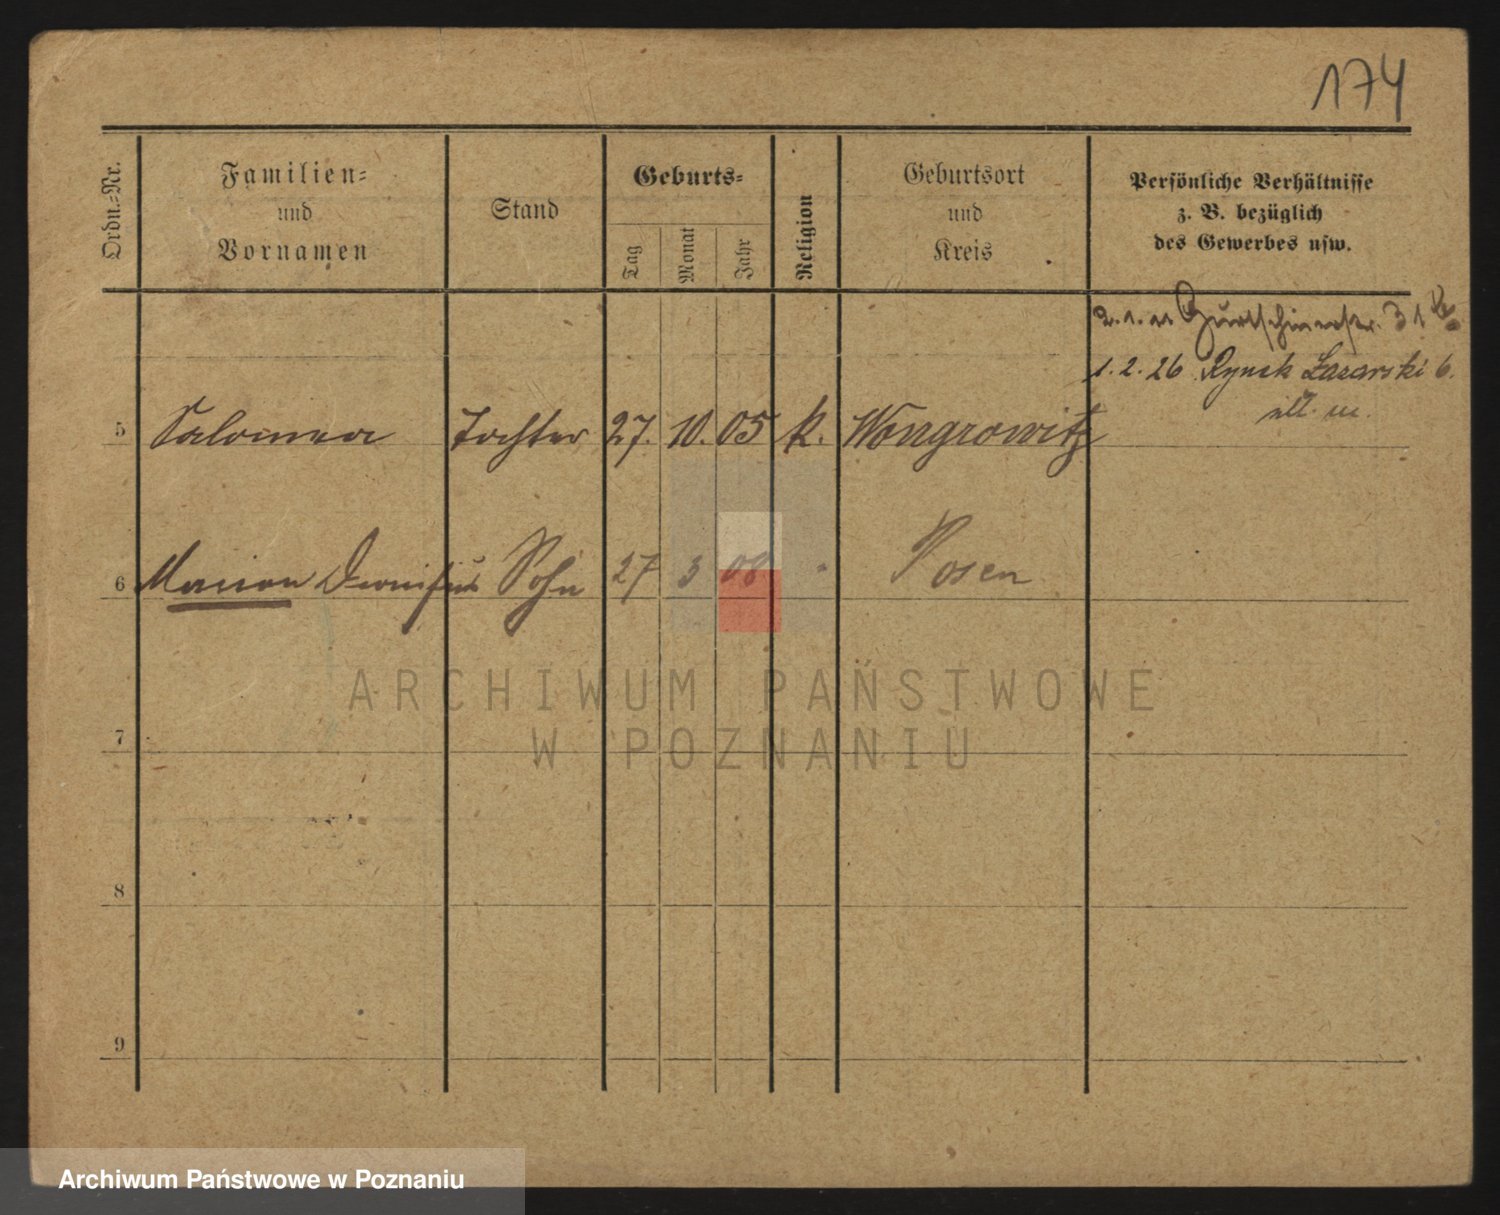 174
Ordn.-Nr.
Familien-
und
Vornamen
Stand
Geburts-
Tag
Monat
Jahr
Religion
Geburtsort
und
Kreis
Persönliche Verhältnisse
z. B. bezüglich
des Gewerbes usw.
2. 1. 11 31
1. 2. 26 Rynek Łazarski 6.
5 Salomea Tochter 27. 10. 05 k. Wongrowitz
6 Marian Dionisius Sohn 27 3 08 Posen
7
8
9
ARCHIWUM PAŃSTWOWE
W POZNANIU
Archiwum Państwowe w Poznaniu